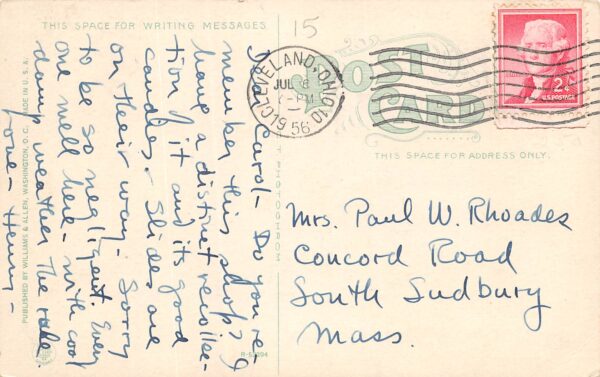 THIS SPACE FOR WRITING MESSAGES
15
POST
CARD
THIS SPACE FOR ADDRESS ONLY.
CLEVELAND, OHIO 10
JUL 6
-PM
1956
2¢
U.S. POSTAGE
Dear Carol - Do you re-
member this shop? I
have a distinct recollec-
tion of it and its good
candies. Slides are
on their way. Sorry
to be so negligent. Every-
one well here - with cool
damp weather the rule.
Love - Henry -
Mrs. Paul W. Rhoades
Concord Road
South Sudbury
Mass.
PUBLISHED BY WILLIAMS & ALLEN, WASHINGTON, D. C. MADE IN U. S. A.